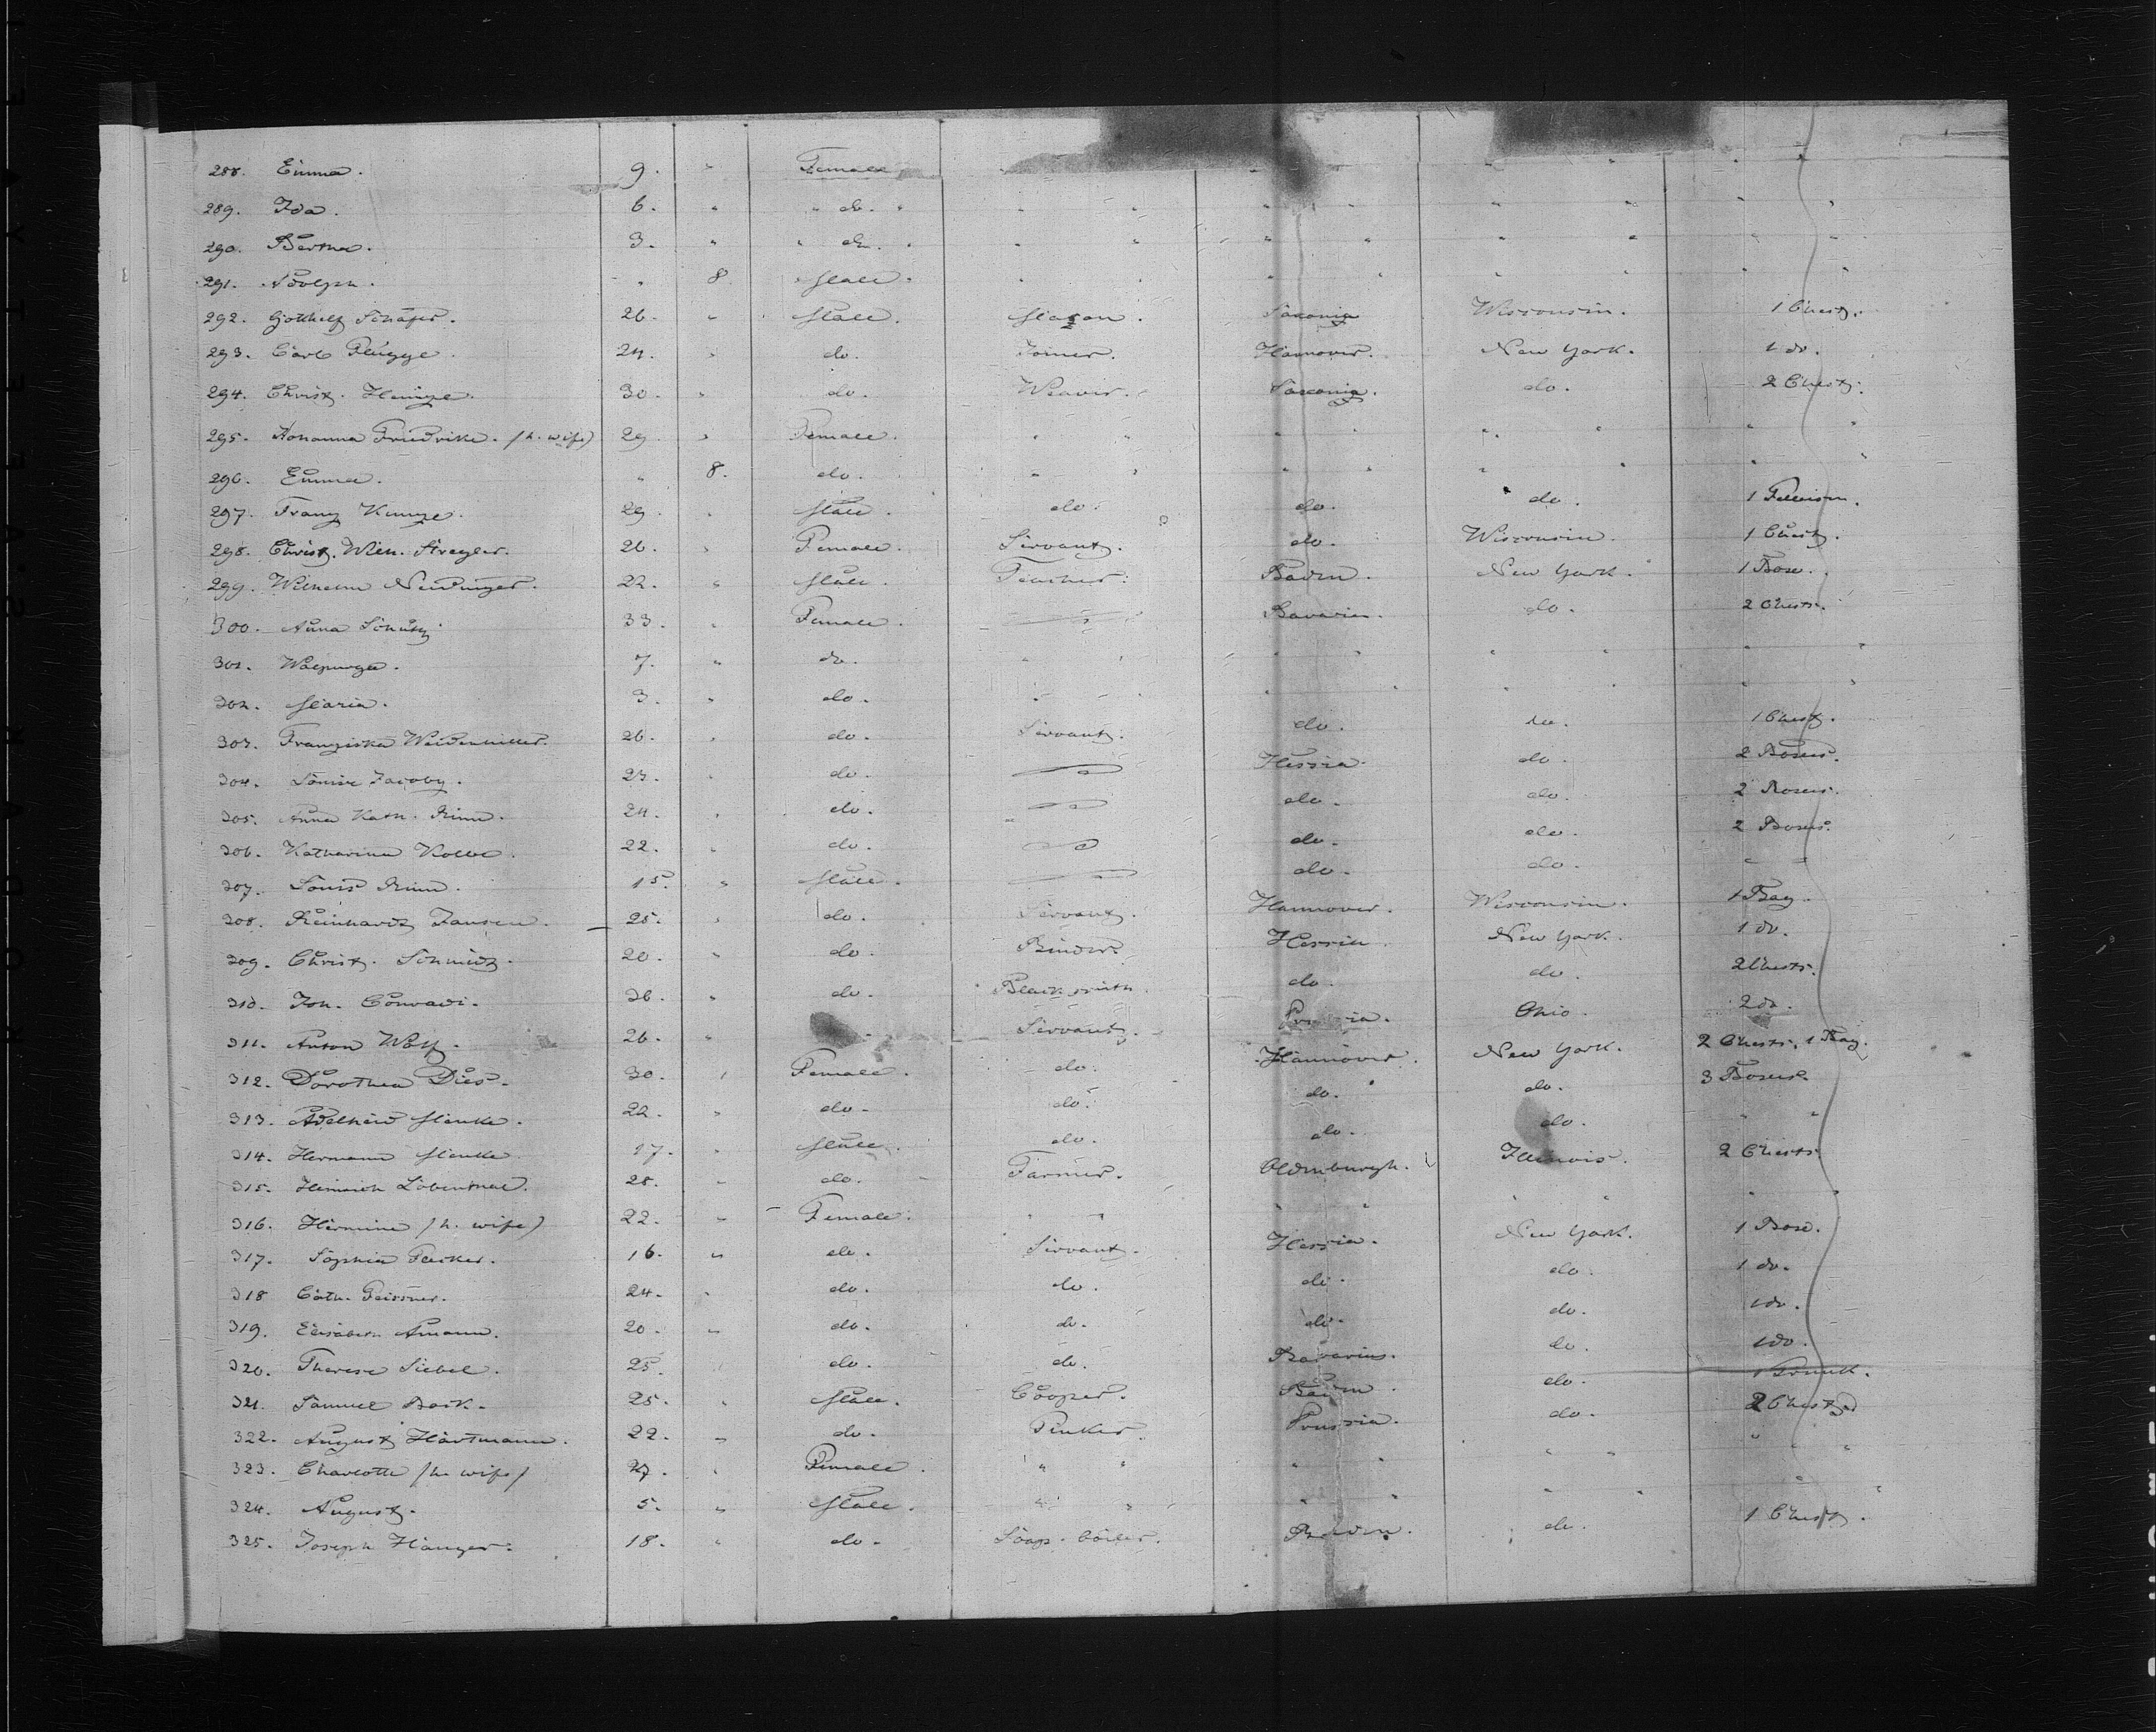 288. Emma. 9. " Female
289. Ida. 6. " " do. " " " " " " " " "
290. Bertha. 3. " " do. " " " " " " " " "
291. Adolph. " 8. Male. " " " " " " " "
292. Gotthelf Schäfer. 26. " Male. Mason. Saxonia Wisconsin. 1 Chest.
293. Carl Flügge. 24. " do. Joiner. Hannover. New York. 1 do.
294. Christ. Heinze. 30. " do. Weaver. Saxonia. do. 2 Chests.
295. Johanna Friedrike. (h. wife) 29 " Female. " " " " " " " "
296. Emma. " 8. do. " " " " " " " "
297. Franz Kunze. 29. " Male. do. do. do. 1 Felleisen.
298. Christ. Wilh. 26. " Female. Servant. do. Wisconsin. 1 Chest.
299. Wilhelm Neidinger. 22. " Male. Teacher. Baden. New York. 1 Box.
300. Anna Schütz. 33. " Female. Bavaria. do. 2 Chests.
301. Walpurga. 7. " do. " " " " " " " "
302. Maria. 3. " do. " " " " " " " "
303. Franziska 26. " do. Servant. do. do. 1 Chest.
304. Louise Jacoby. 23. " do. Hessia. do. 2 Boxes.
305. Anna Kath. Rinn. 24. " do. do. do. 2 Boxes.
306. Katharina Kolbe. 22. " do. do. do. 2 Boxes.
307. Louis Rinn. 15. " Male. do. do. " "
308. Reinhardt Jansen. 25. " do. Servant. Hannover. Wisconsin. 1 Bag.
309. Christ. Schmidt. 20. " do. Binder. Hessia. New York. 1 do.
310. Joh. Conradi. 36. " do. Blacksmith. do. do. 2 Chests.
311. Anton Wolf. 26. " Servant. Prussia. Ohio. 2 do.
312. Dorothea Dies. 30. " Female. do. Hannover. New York. 2 Chests, 1 Bag.
313. Adelheid Menke. 22. " do. do. do. do. 3 Boxes.
314. Hermann Menke. 17. " Male. do. do. do. " "
315. Heinrich Löbenthal. 28. " do. Farmer. Oldenburgh. Illinois. 2 Chests.
316. Hermine (h. wife) 22. " Female. " " " " " " " "
317. Sophia 16. " do. Servant. Hessia. New York. 1 Box.
318 Cath. Geissner. 24. " do. do. do. do. 1 do.
319. Elisabeth Amann. 20. " do. do. do. do. 1 do.
320. Therese Siebel. 25. " do. do. Bavaria. do. 1 do.
321. Samuel Bock. 25. " Male. Cooper. Baden. do. 1 Trunk.
322. August Hartmann. 22. " do. Prussia. do. 2 Chests.
323. Charlotte (h. wife) 27. " Female. " " " " " " " "
324. August. 5. " Male. " " " " " " " "
325. Joseph Hänger. 18. " do. Soap-boiler. Baden. do. 1 Chest.